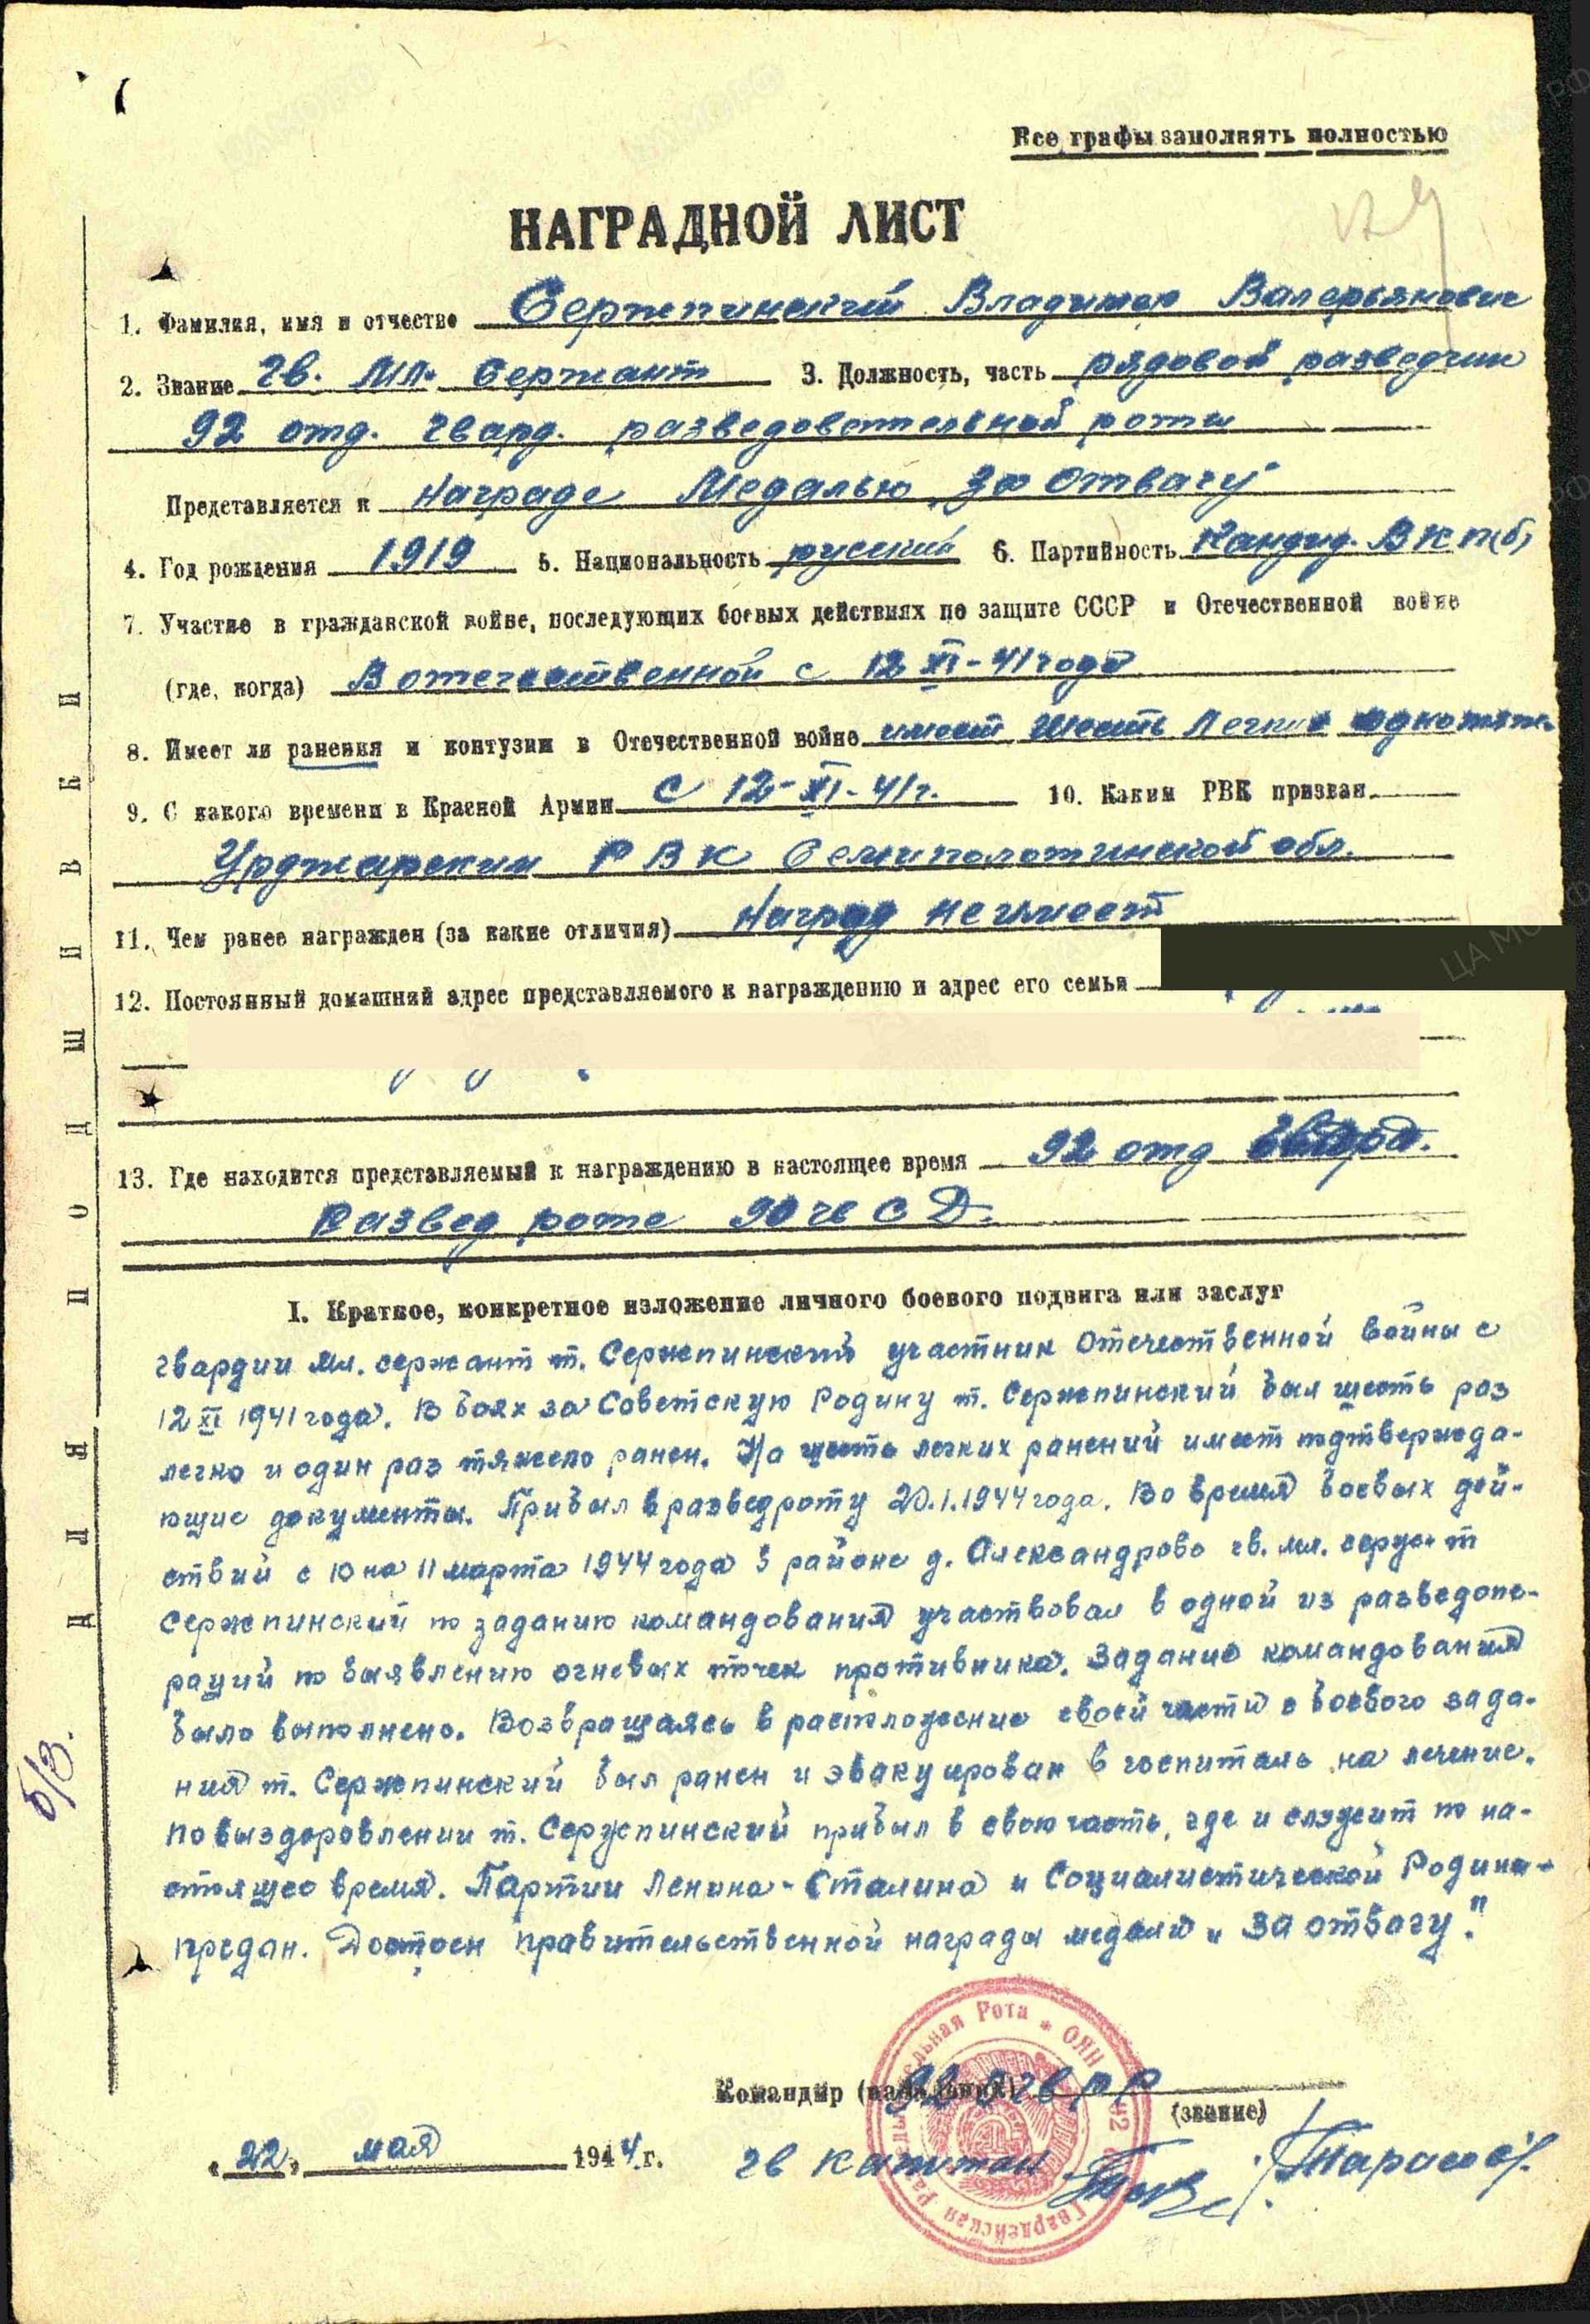 Все графы заполнять полностью
НАГРАДНОЙ ЛИСТ
1. Фамилия, имя и отчество Сержпинский Владимир Валерьянович
2. Звание гв. мл. Сержант 3. Должность, часть рядовой разведчик
92 отд. гвард. разведовательной роты
Представляется к Награде Медалью „За Отвагу"
4. Год рождения 1919 5. Национальность русский 6. Партийность Кандид. ВКП(б)
7. Участие в гражданской войне, последующих боевых действиях по защите СССР и Отечественной войне
(где, когда) В отечественной с 12 XI-41 года
8. Имеет ли ранения и контузии в Отечественной войне имеет шесть легких одно тяж.
9. С какого времени в Красной Армии с 12-XI-41г. 10. Каким РВК призван
Урджарским РВК Семиполотинской обл.
11. Чем ранее награжден (за какие отличия) Наград не имеет
12. Постоянный домашний адрес представляемого к награждению и адрес его семьи
13. Где находится представляемый к награждению в настоящее время 92 отд гвард.
Развед роте 90 гв С Д.
I. Краткое, конкретное изложение личного боевого подвига или заслуг
гвардии мл. сержант т. Сержпинский участник Отечественной войны с
12 XI 1941 года. В боях за Советскую Родину т. Сержпинский был шесть раз
легко и один раз тяжело ранен. На шесть легких ранений имеет подтвержда-
ющие документы. Прибыл в разведроту 20.1.1944 года. Во время боевых дей-
ствий с 10 на 11 марта 1944 года в районе д. Александрово гв. мл. сержант
Сержпинский по заданию командования участвовал в одной из разведопе-
раций по выявлению огневых точек противника. Задание командования
было выполнено. Возвращаясь в расположение своей части с боевого зада-
ния т. Сержпинский был ранен и эвакуирован в госпиталь на лечение.
По выздоровлении т. Сержпинский прибыл в свою часть, где и служит по на-
стоящее время. Партии Ленина-Сталина и Социалистической Родине-
предан. Достоен правительственной награды медали „За отвагу."
Командир (начальник) 92 ОГвРР
(звание)
„22" мая 1944 г. гв капитан Тарасов
ДЛЯ ПОДШИВКИ
б/з.